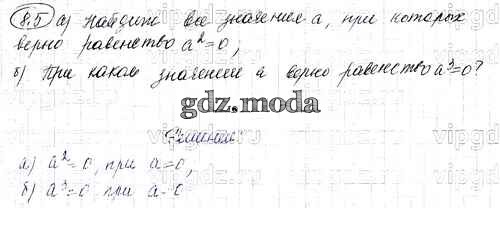 8.5 а) Найдите все значения а, при которых
верно равенство a²=0;
б) При каком значении а верно равенство a³=0?
gdz.moda
Решение:
а) a²=0, при a=0,
б) a³=0 при a=0